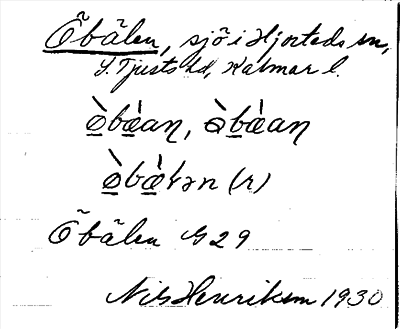 Öbälen, sjö i Hjorteds sn,
S. Tjusts hd, Kalmar l.
ø̀bæ̀an, ə̀bæ̀an
ø̀bæ̀ɫən (r)
Öbälen G 29
Nils Henrikson 1930